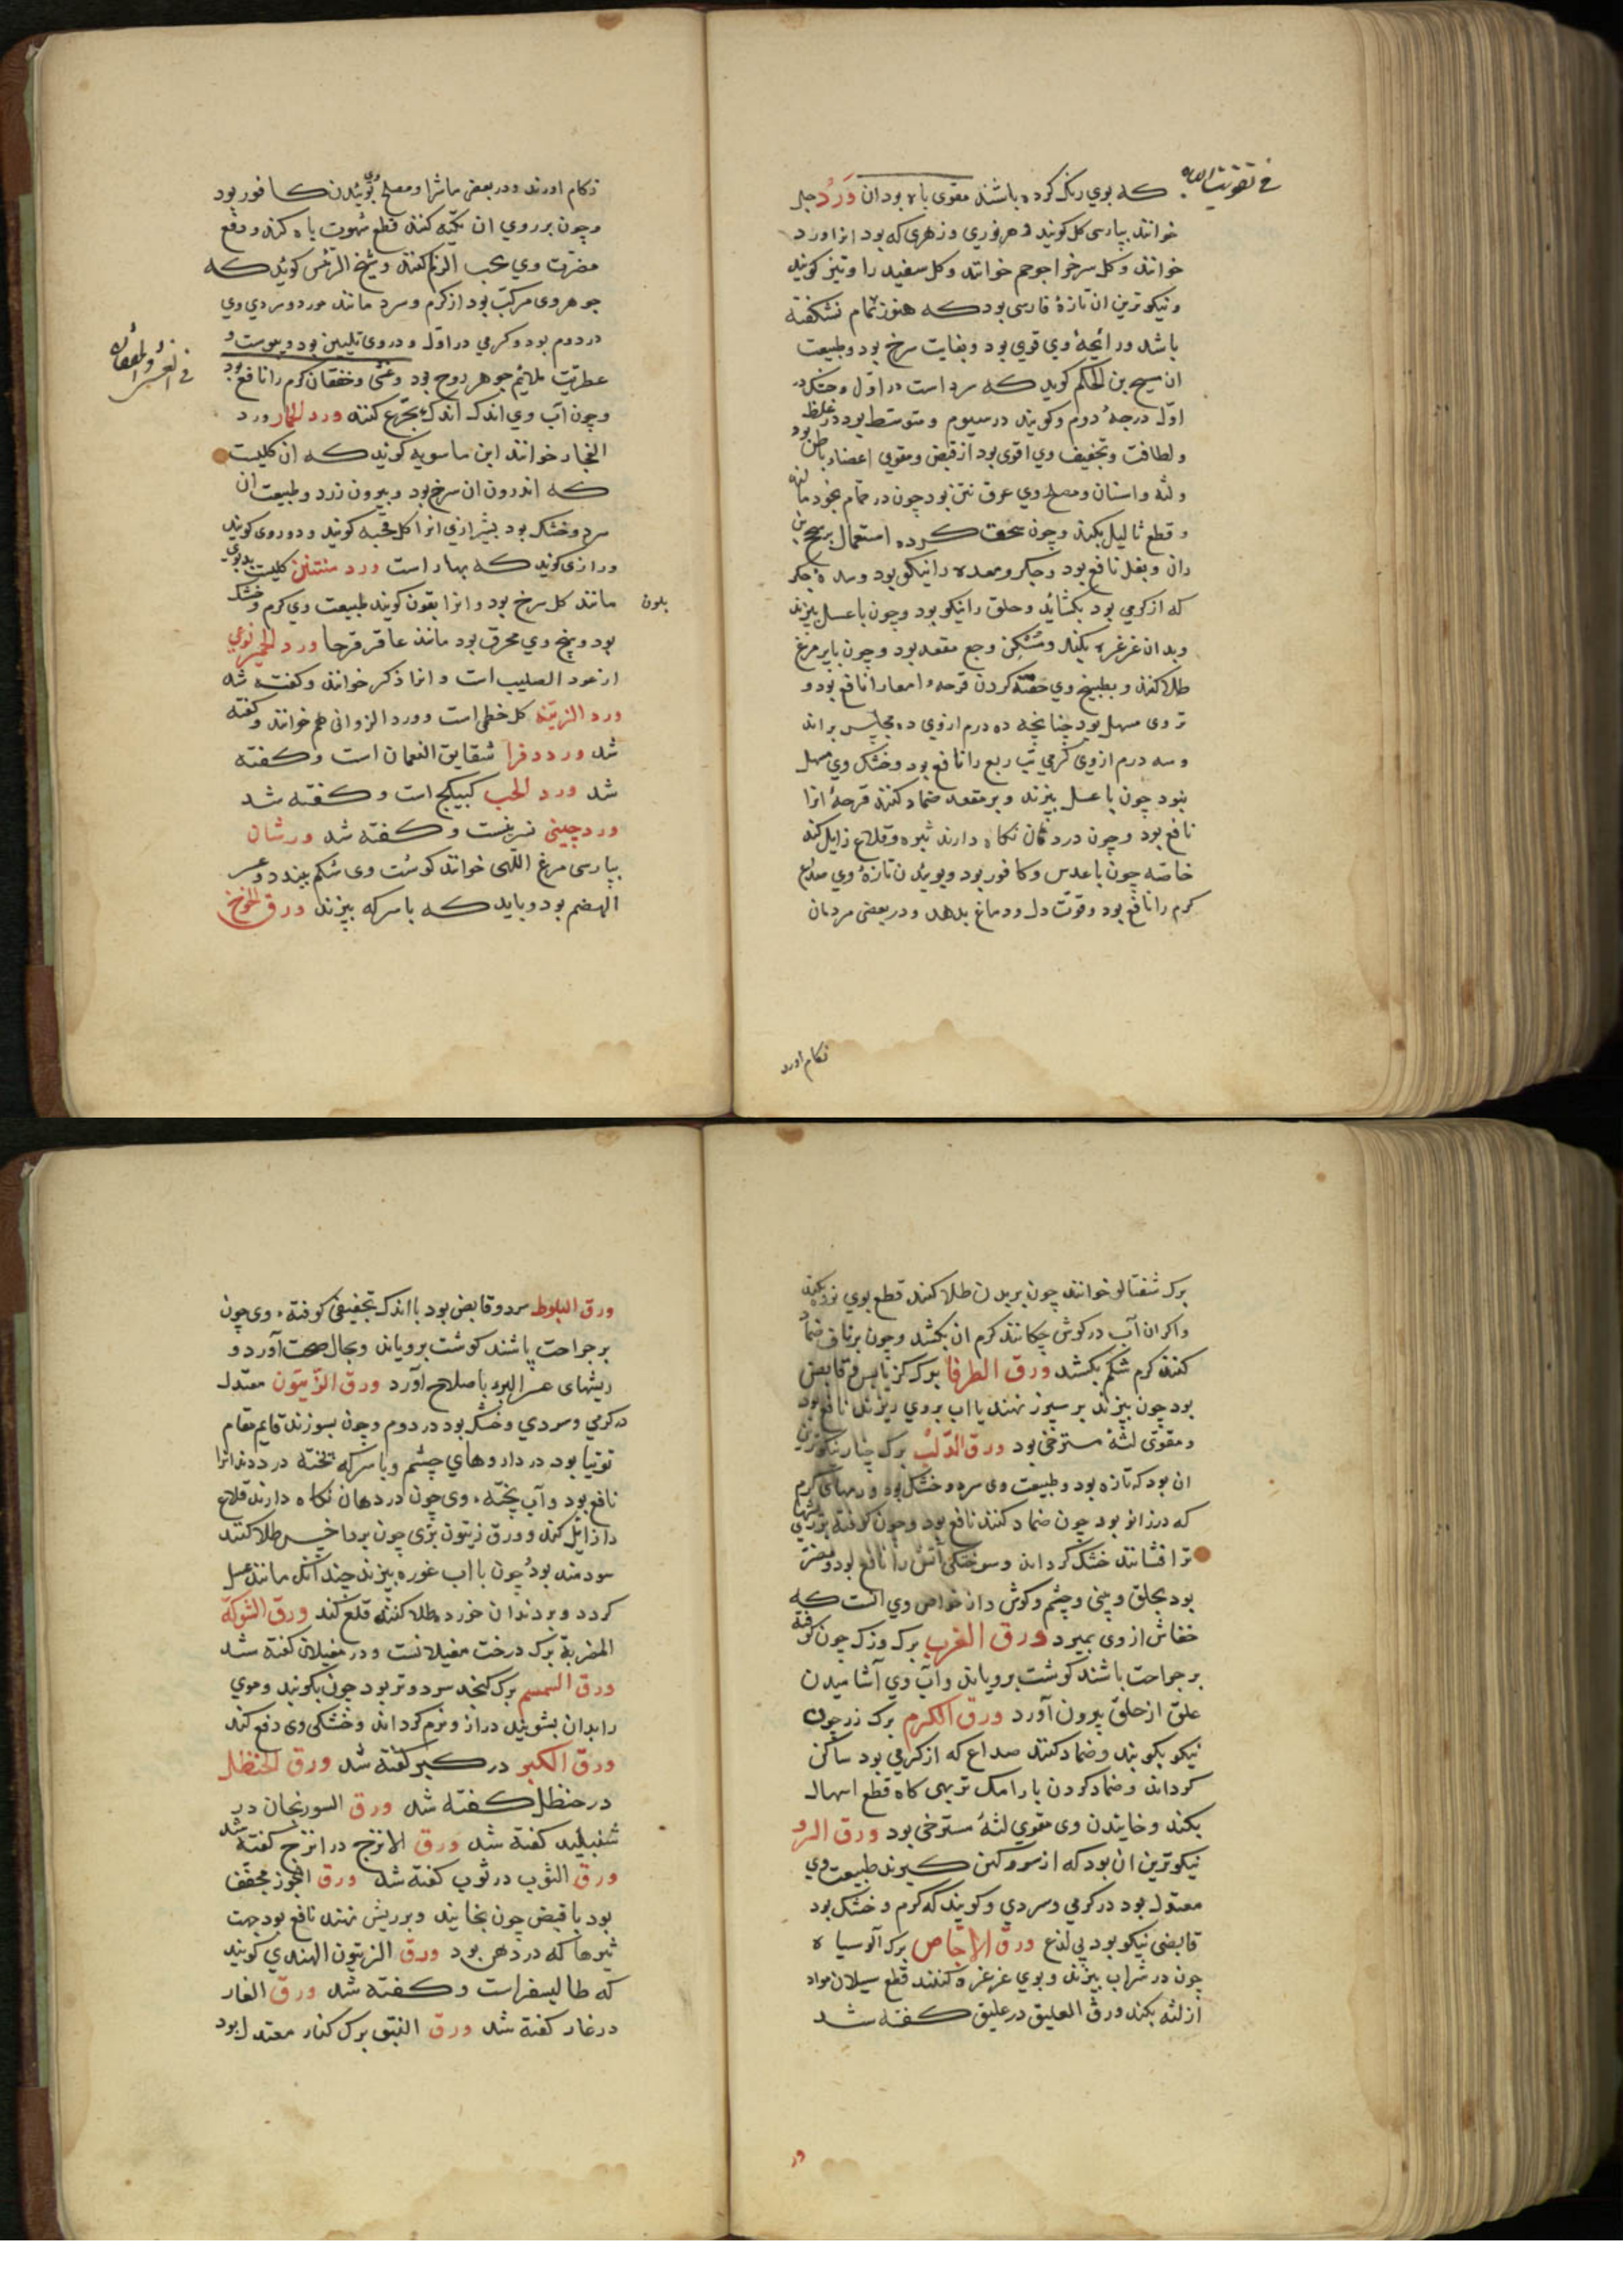 في تقويت الباه
که بوي رنک کرده باشند مقوی باه بود ان وَرْد جلر
خوانند بپارسی کل کویند و هر نوری و زهری که بود انرا ورد
خوانند و کل سرخرا جوجم خوانند و کل سفید را وتیز کویند
و نیکوترین ان تازهٔ فارسی بود که هنوز تمام نشکفته
باشد و رائحهٔ وي قوي بود و بغایت سرخ بود و طبیعت
ان مسیح بن الحکم کوید که سرد است در اوّل و خشک در
اوّل درجهٔ دوم و کویند در سیوم و متوسط بود در غلظ
و لطافت و تجفیف وي اقوی بود از قبض و مقوي اعضاء باطن بود
و لثه و اسنان و مصلح وي عرق نتن بود چون در حمام بخود مالند
و قطع ثالیل بکند و چون سحق کرده استعمال بر سحج بن
ران و بغل نافع بود و جکر و معده را نیکو بود و سدهٔ جکر
که از کرمي بود بکشاید و حلق را نیکو بود و چون با عسل بپزند
و بدان غرغره بکند و مُسَکِن وجع مقعد بود و چون با پر مرغ
طلا کنند و بطبیخ وي حقنه کردن قرحهٔ امعا را نافع بود و
تر وی مسهل بود چنانچه ده درم ازوي ده مجلس براند
و سه درم ازوي کرمي تب ربع را نافع بود و خشک وي مسهل
نبود چون با عسل بپزند و بر مقعد ضماد کنند قرحهٔ انرا
نافع بود و چون در دهان نکاه دارند ثبره و قلاع زایل کند
خاصّه چون با عدس و کافور بود و بوئیدن تازهٔ وي صداع
کرم را نافع بود و قوّت دل و دماغ بدهد و در بعضی مردمان
زکام اورد
زکام اورند و در بعضی ماشرا و مصلح بوئیدن کافور بود
و چون بر روي ان تکیه کنند قطع شهوت باه کند و دفع
مضرّت وي بحب الزلم کنند و شیخ الرئس کوید که
جوهر وی مرکب بود از کرم و سرد مانند مورد و سردي وي
در دوم بود و کرمي در اوّل و در وی تلیین بود و یبوست و
عطریّت ملائم جوهر روح بود و غشی و خفقان کرم را نافع بود
في الغشي و الخفقان
و چون آب وي اندک اندک بجرّع کنند ورد الحمار ورد
الفجار خوانند ابن ماسویه کویند که ان کلیست
که اندرون ان سرخ بود و بیرون زرد و طبیعت ان
سرد و خشک بود بشیرازي انرا کل قحبه کویند و دوروی کویند
و رازی کوید که بهار است ورد منتنن کلیست بدبوي
بلون مانند کل سرخ بود و انرا بقون کویند طبیعت وي کرم و خشک
بود و بیخ وي محرق بود مانند عاقرقرحا ورد الحمیر نوعي
از عود الصلیب است و انرا ذکر خوانند و کفته شد
ورد الزینة کل خطمی است و ورد الزوانی هم خوانند و کفته
شد ورد دفرا شقایق النعمان است و کفته
شد ورد الحب کبیکج است و کفته شد
ورد چینی نسرینست و کفته شد ورشان
بپارسی مرغ اللهی خوانند کوشت وی شکم ببندد و عسر
الهضم بود و باید که با سرکه بپزند ورق الخوخ
برک شفتالو خوانند چون بر بدن طلا کنند قطع بوي نوره بکند
و اکر ان آب در کوش چکانند کرم ان بکشد و چون بر ناف ضماد
کنند کرم شکم بکشد ورق الطرفا برک کز یابس و قابض
بود چون بپزند بر سپرز نهند یا اب بروي ریزند نافع بود
و مقوّی لثهٔ مسترخی بود ورق الدّلب برک چنار نیکوترین
ان بود که تازه بود و طبیعت وی سرد و خشک بود ورمهای کرم
که در زانو بود چون ضماد کنند نافع بود و چون کوفته بر ریشهاي
تر افشانند خشک کرداند و سوختکی آتش را نافع بود و مضر
بود بحلق و بینی و چشم و کوش و از خواص وی انست که
خفاش ازوی بمیرد ورق الغرب برک وزک چون کوفته
بر جراحت باشند کوشت برویاند و آب وي آشامیدن
علق از حلق بیرون آورد ورق الکرم برک رز چون
نیکو بکوبند و ضماد کنند صداع که از کرمي بود ساکن
کرداند و ضماد کردن با رامک تریهی کاه قطع اسهال
بکند و خاییدن وی مقوي لثهٔ مسترخی بود ورق السرو
نیکوترین ان بود که از سرو کهن کیرند طبیعت وي
معتدل بود در کرمي و سردي و کویند که کرم و خشک بود
قابضی نیکو بود بی لذع ورق الاجّاص برک آلو سیاه
چون در شراب بپزند و بوي غرغره کنند قطع سیلان مواد
از لثه بکند ورق العلیق در علیق کفته شد
ور
ورق البلوط سرد و قابض بود با اندک تجفیفی کوفتهٔ وی چون
بر جراحت پاشند کوشت برویاند و بحال صحت آورد و
ریشهای عسر البرء باصلاح آورد ورق الزّیتون معتدل
در کرمي و سردي و خشک بود در دوم و چون بسوزند قایم مقام
توتیا بود در داروهاي چشم و با سرکه پخته درد دندانرا
نافع بود و آب پختهٔ وی چون در دهان نکاه دارند قلاع
را زایل کند و ورق زیتون برّی چون بر داخس طلا کنند
سودمند بود چون با اب غوره بپزند چندانک مانند عسل
کردد و بر دندان خورده طلا کنند قلع کند ورق الشوکة
المصریة برک درخت مغیلانست و در مغیلان کفته شد
ورق السمسم برک کنجد سرد و تر بود چون بکوبند و موي
را بدان بشویند دراز و نرم کرداند و خشکی وی دفع کند
ورق الکبر در کبر کفته شد ورق الحنظل
در حنظل کفته شد ورق السورنجان در
شنبلید کفته شد ورق الاترج در اترج کفته شد
ورق الثوب در ثوب کفته شد ورق الجوز مجفّف
بود با قبض چون بخایند و بر ریش نهند نافع بود جهت
ثبرها که در دهن بود ورق الزیتون الهندي کویند
که طالیسفر است و کفته شد ورق الغار
در غار کفته شد ورق النبق برک کنار معتدل بود